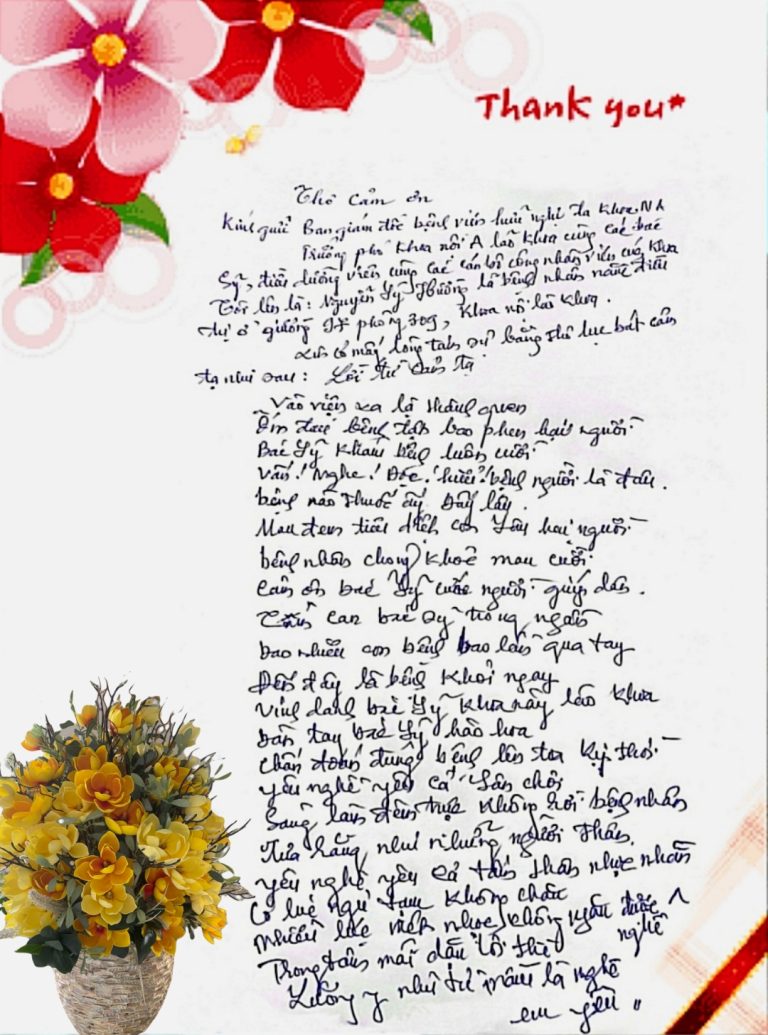 Thank you*
Thơ cảm ơn
Kính gửi Ban giám đốc bệnh viện hữu nghị đa khoa NA
Trưởng phó khoa nội A lão khoa cùng các bác
Sỹ, điều dưỡng viên cùng các cán bộ công nhân viên của khoa
Tôi tên là: Nguyễn Sỹ Hường là bệnh nhân nằm điều
trị ở giường 17 phòng 309, khoa nội lão khoa.
Xin có mấy lòng tâm sự bằng thơ lục bát cảm
tạ như sau: Lời từ cảm tạ
Vào viện xa lạ thành quen
Ốm đau bệnh tật bao phen hại người
Bác Sỹ khám bệnh luôn cười
Vấn! Nghe! Đọc! hiểu! bệnh người là đâu.
bệnh nào thuốc ấy Đây lâu.
Mau đem tiêu diệt con sâu hại người
bệnh nhân chóng khoẻ mau cười
Cảm ơn bác sỹ cứu người quý dân.
can bác sỹ trong ngành
bao nhiêu con bệnh bao lần qua tay
Đến đây là bệnh khỏi ngay
Vinh danh bác sỹ khoa này lão khoa
Bàn tay bác sỹ hào hoa
chẩn đoán đúng bệnh lên toa kịp thời
yêu nghề yêu cả
Sáng làm đêm trực không rời bệnh nhân
Tựa hồng như những người thân.
yêu nghề yêu cả tấm thân nhọc nhằn
Có lúc ngủ tạm không chăn
Nhiều lúc mệt nhọc không ngăn được nghề
Trong tâm mãi dẫu lời thề
Lương y như từ mẫu là nghề
em yêu "